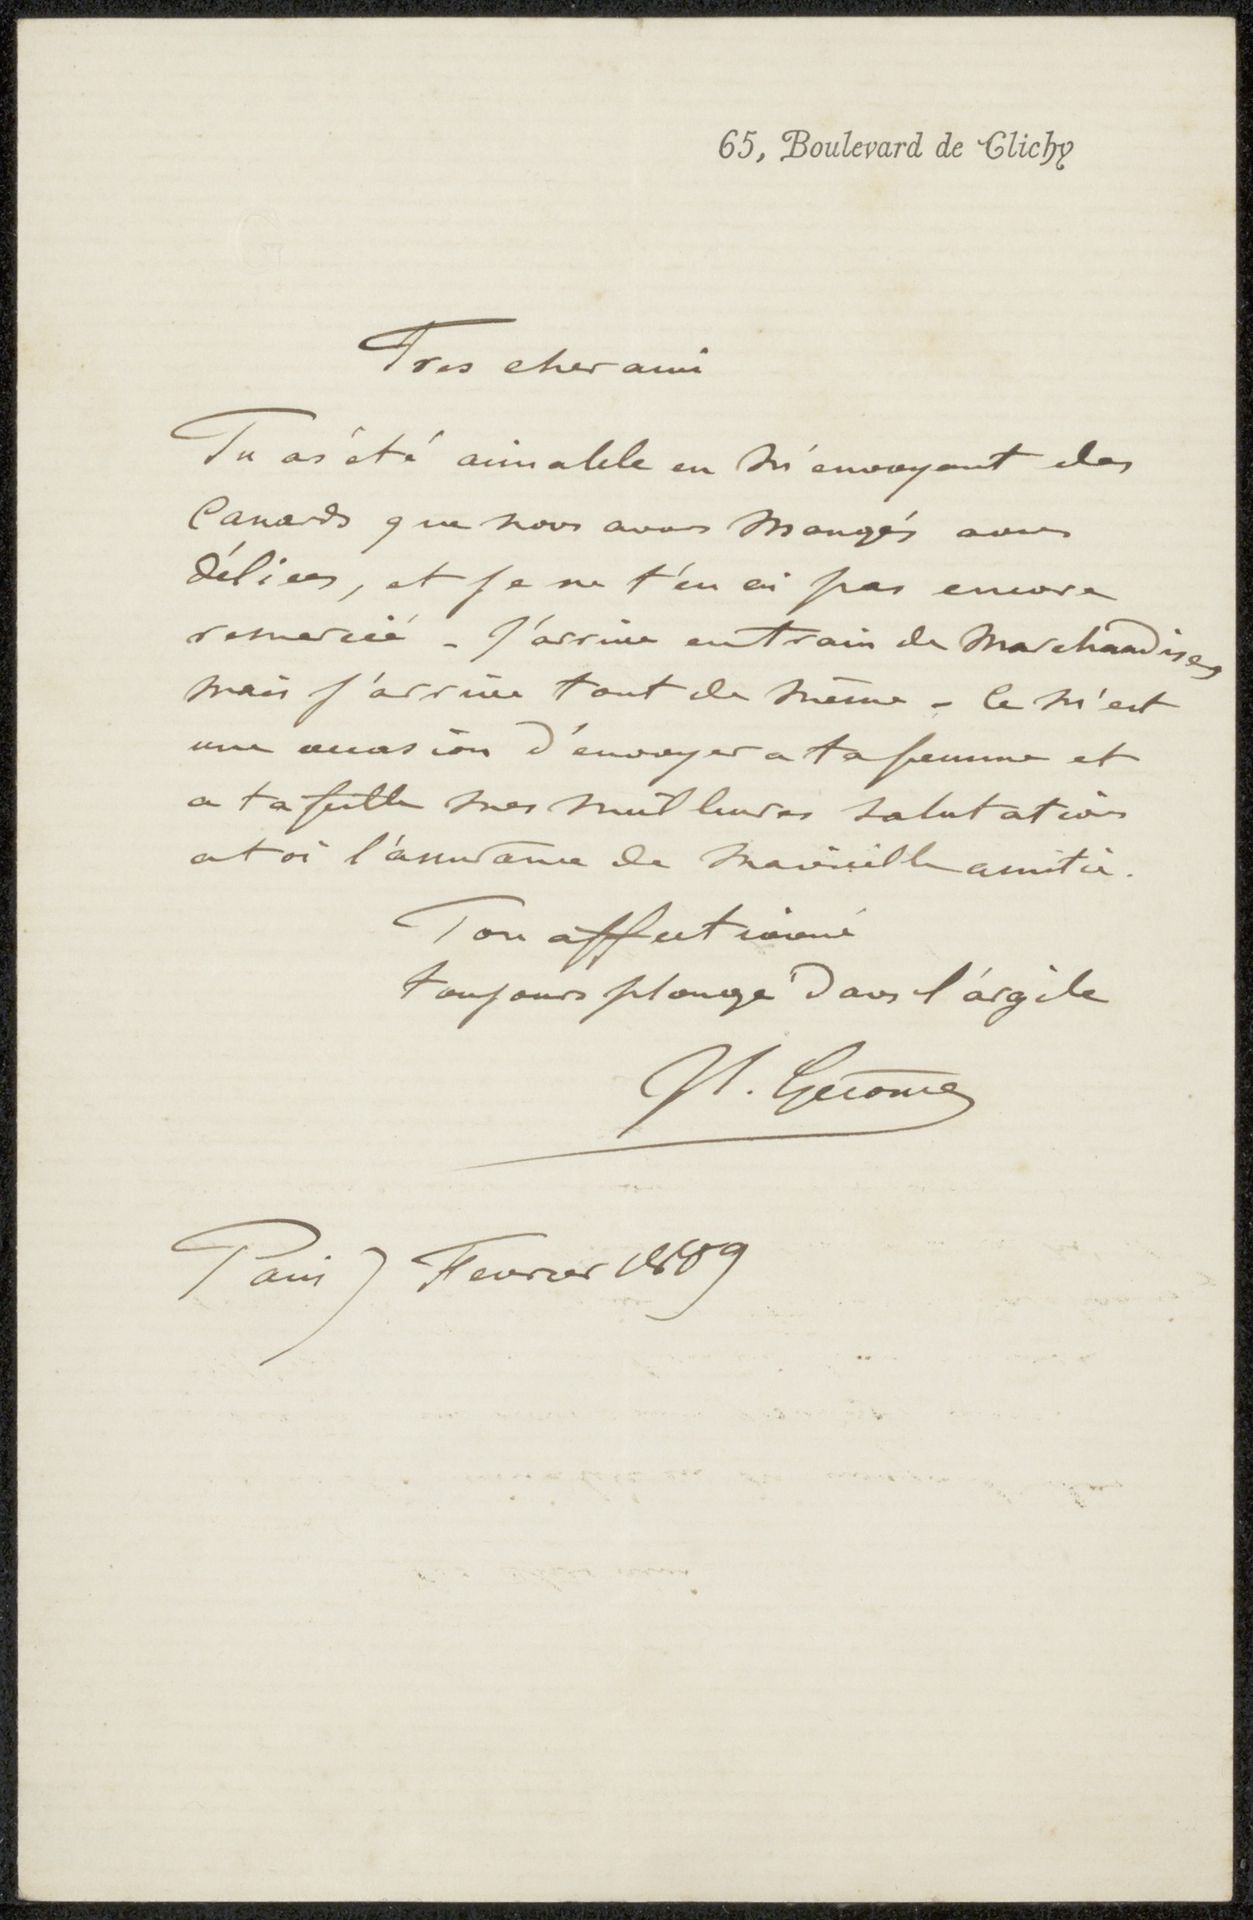 65, Boulevard de Clichy
G
Tres cher ami
Tu as été aimable en m'envoyant des
Canards que nous avons mangés avec
délices, et je ne t'en ai pas encore
remercié - J'arrive en train de Marchandises
mais j'arrive tout de même - Ce m'est
une occasion d'envoyer a ta femme et
a ta fille mes meilleures salutations
a toi l'assurance de ma vieille amitié.
Ton affectionné
toujours plongé dans l'argile
Gérome
Paris 7 Fevrier 1889